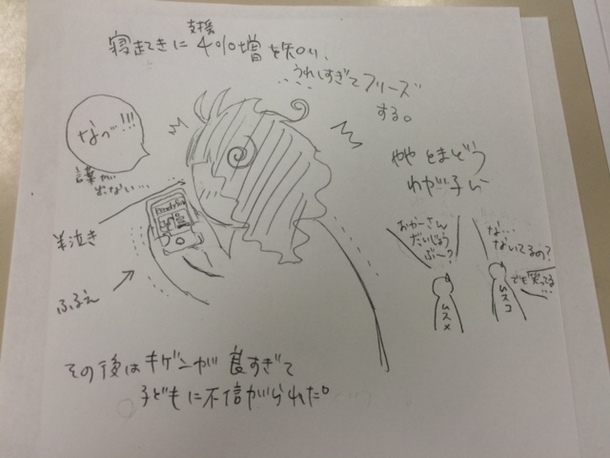 寝起きに支援40%増を知り、
うれしすぎてフリーズ
する。
なっ゙!!!
言葉が
出ない…
半泣き
ふるえ
やや とまどう
わが子ら
おかーさん
だいじょう
ぶー?
な…
ないてるの?
でも笑ってる…
ムスメ
ムスコ
その後はキゲンが良すぎて
子どもに不信がられた。